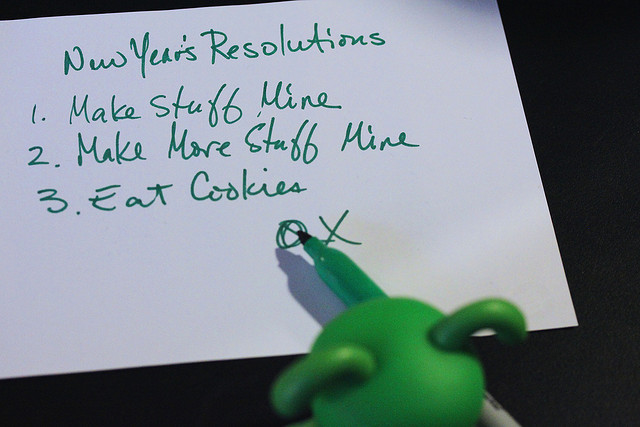 New Year's Resolutions
1. Make Stuff Mine
2. Make More Stuff Mine
3. Eat Cookies
OX